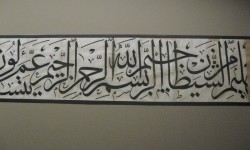 من الشيطان الرجيم بسم الله الرحمن الرحيم عم يتساءلون